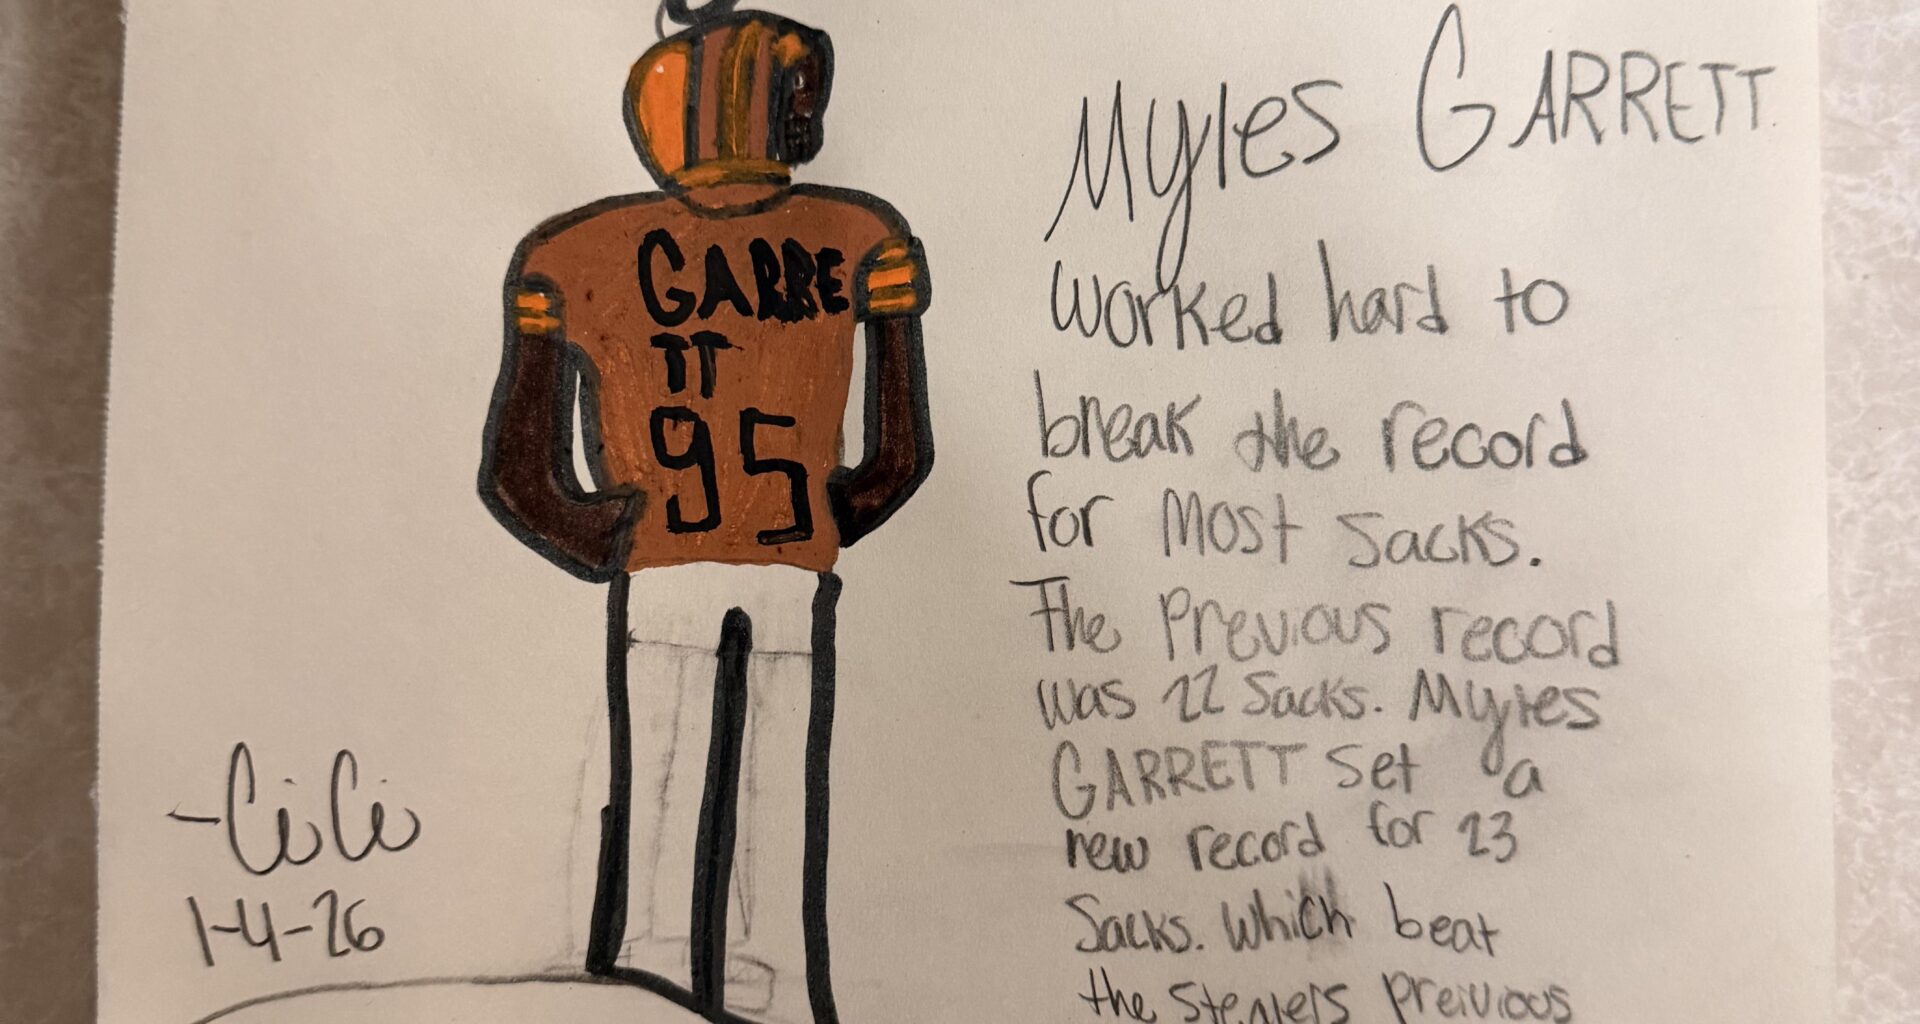 GARRE
TT
95
Myles GARRETT
worked hard to
break the record
for Most Sacks.
The Previous record
was 22 Sacks. Myles
GARRETT Set a
new record for 23
Sacks. Which beat
the Stealers Preivious
-CiCi
1-4-26